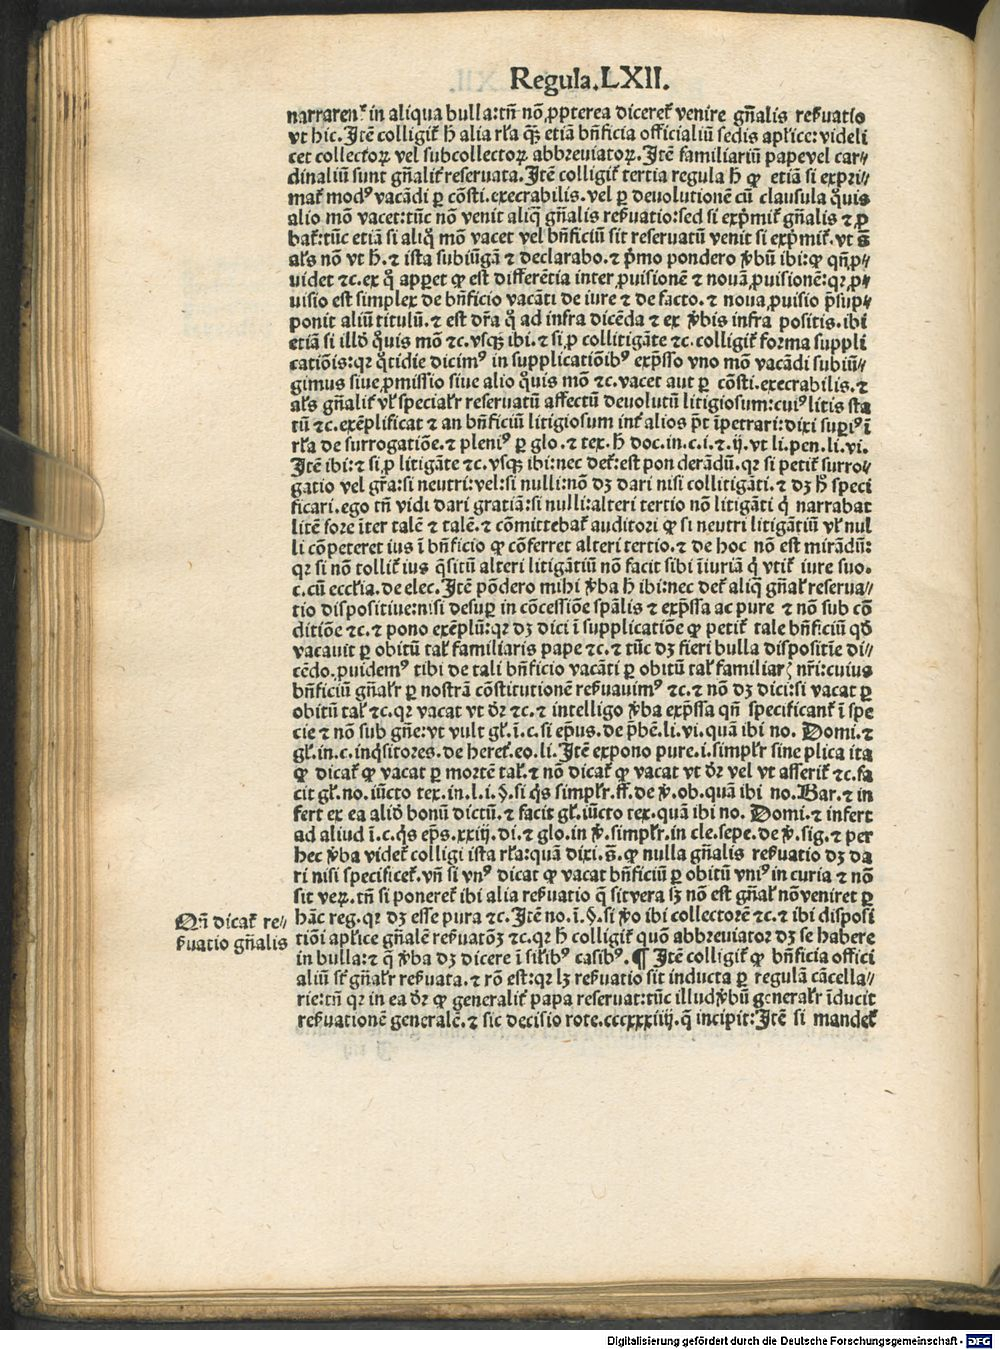 Regula.LXII.
narrarenꝰ in aliqua bulla:tñ nō ꝓpterea diceret̃ venire gñalis reẜuatio
vt hic.Itē colligit̃ ħ alia rła qꝫ etiā bñficia officialiū sedis apłice:videli
cet collectoꝝ vel subcollectoꝝ abbreuiatoꝝ.Itē familiariū pape vel car⸗
dinaliū sunt gñalit̃ reseruata.Itē colligit̃ tertia regula ħ ꝙ etiā si expri⸗
mat̃ modꝰ vacādi ꝑ cōsti.execrabilis.vel ꝑ deuolutionē cū clausula qͦuis
alio mō vacet:tūc nō venit aliq̄ gñalis reẜuatio:sed si exp̄mit̃ gñalis ⁊ ꝓ
bat̃:tūc etiā si aliqͦ mō vacet vel bñficiū sit reseruatū venit si exp̄mit̃.vt s̄
ałs nō vt ħ.⁊ ista subiūgā ⁊ declarabo.⁊ p̄mo pondero v̓bū ibi:ꝙ qñ ꝓ⸗
uidet ⁊c.ex qͦ apꝑet ꝙ est differētia inter ꝓuisionē ⁊ nouā ꝓuisionē:qꝛ ꝓ⸗
uisio est simplex de bñficio vacāti de iure ⁊ de facto.⁊ noua ꝓuisio p̄sup⸗
ponit aliū titulū.⁊ est dr̄a qͦ ad infra dicēda ⁊ ex v̓bis infra positis.ibi
etiā si illđ qͦuis mō ⁊c.vsqꝫ ibi.⁊ si ꝓ collitigāte ⁊c.colligit̃ forma suppli
catiōis:qꝛ qͦtidie dicimꝰ in supplicatiōibꝰ exp̄sso vno mō vacādi subiū⸗
gimus siue ꝓmissio siue alio qͦuis mō ⁊c.vacet aut ꝑ cōsti.execrabilis.⁊
ałs gñalit̃ vł specialr̄ reseruatū affectū deuolutū litigiosum:cuiꝰ litis sta
tū ⁊c.exēplificat ⁊ an bñficiū litigiosum int̃ alios p̄t īpetrari:dixi supͥꝰ ī
rła de surrogatiōe.⁊ pleniꝰ ꝑ glo.⁊ tex.ħ doc.in.c.i.⁊.ij.vt li.pen.li.vi.
Itē ibi:⁊ si ꝓ litigāte ⁊c.vsqꝫ ibi:nec det̃:est pon derādū.qꝛ si petit̃ surro⸗
gatio vel gr̄a:si neutri:vel:si nulli:nō dꝫ dari nisi collitigāti.⁊ dꝫ ħ speci
ficari.ego tñ vidi dari gratiā:si nulli:alteri tertio nō litigāti qͥ narrabat
litē fore īter talē ⁊ talē.⁊ cōmittebat̃ auditori ꝙ si neutri litigātiū vł nul
li cōpeteret ius ī bñficio ꝙ cōferret alteri tertio.⁊ de hoc nō est mirādū:
qꝛ si nō tollit̃ ius q̄situ̅ alteri litigātiū nō facit sibi īiuriā qͥ vtit̃ iure suo.
c.cū ecclia.de elec.Itē pōdero mihi v̓ba ħ ibi:nec det̃ aliq̄ gñał reserua⸗
tio dispositiue:nisi desuꝑ in cōcessiōe sp̄alis ⁊ exp̄ssa ac pure ⁊ nō sub cō
ditiōe ⁊c.⁊ pono exēplū:qꝛ dꝫ dici ī supplicatiōe ꝙ petit̃ tale bñficiū qđ
vacauit ꝑ obitū tał familiaris pape ⁊c.⁊ tūc dꝫ fieri bulla dispositiē di⸗
cēdo.ꝓuidemꝰ tibi de tali bñficio vacāti ꝑ obitū tał familiarꝭ nr̄i:cuius
bñficiū gñalr̄ ꝑ nostrā cōstitutionē reẜuauimꝰ ⁊c.⁊ nō dꝫ dici:si vacat ꝑ
obitū tał ⁊c.qꝛ vacat vt dr̄ ⁊c.⁊ intelligo v̓ba exp̄ssa qñ specificant̃ ī spe
cie ⁊ nō sub gñe:vt vult gł.ī.c.si epūs.de p̄bē.li.vi.quā ibi no. Domi.⁊
gł.in.c.inq̄sitores.de heret̃.eo.li.Itē expono pure.i.simplr̄ sine plica ita
ꝙ dicat̃ ꝙ vacat ꝑ mortē tał.⁊ nō dicat̃ ꝙ vacat vt dr̄ vel vt asserit̃ ⁊c.fa
cit gł.no.iūcto tex.in.l.i.§.si qͥs simplr̄.ff.de v̓.ob.quā ibi no.Bar.⁊ in
fert ex ea aliđ bonū dictū.⁊ facit gł.iūcto tex.quā ibi no. Domi.⁊ infert
ad aliud ī.c.qͥs ep̄s.xxiij.di.⁊ glo.in v̓.simplr̄.in cle.sepe.de v̓.sig.⁊ per
hec v̓ba videt̃ colligi ista rła:quā dixi.s̄.ꝙ nulla gñalis reẜuatio dꝫ da
ri nisi specificet̃.vñ si vnꝰ dicat ꝙ vacat bñficiū ꝑ obitū vniꝰ in curia ⁊ nō
sit veꝝ.tñ si poneret̃ ibi alia reẜuatio q̄ sit vera sꝫ nō est gñał nō veniret ꝑ
hāc reg.qꝛ dꝫ esse pura ⁊c.Itē no.ī.§.si v̓o ibi collectorē ⁊c.⁊ ibi disposi
tiōi apłice gñalē reẜuatōꝫ ⁊c.qꝛ ħ colligit̃ quō abbreuiator dꝫ se habere
in bulla:⁊ q̄ v̓ba dꝫ dicere ī siłibꝰ casibꝰ.¶ Itē colligit̃ ꝙ bñficia offici
aliū st̃ gñalr̄ reẜuata.⁊ rō est:qꝛ lꝫ reẜuatio sit inducta ꝑ regulā cācella⸗
rie:tñ qꝛ in ea dr̄ ꝙ generalit̃ papa reseruat:tūc illud v̓bū generalr̄ īducit
reẜuationē generalē.⁊ sic decisio rote.cccxxxiiij.q̄ incipit:Itē si mandet̃
Qñ dicat̃ re⸗
ẜuatio gñalis
Digitalisierung gefördert durch die Deutsche Forschungsgemeinschaft - DFG